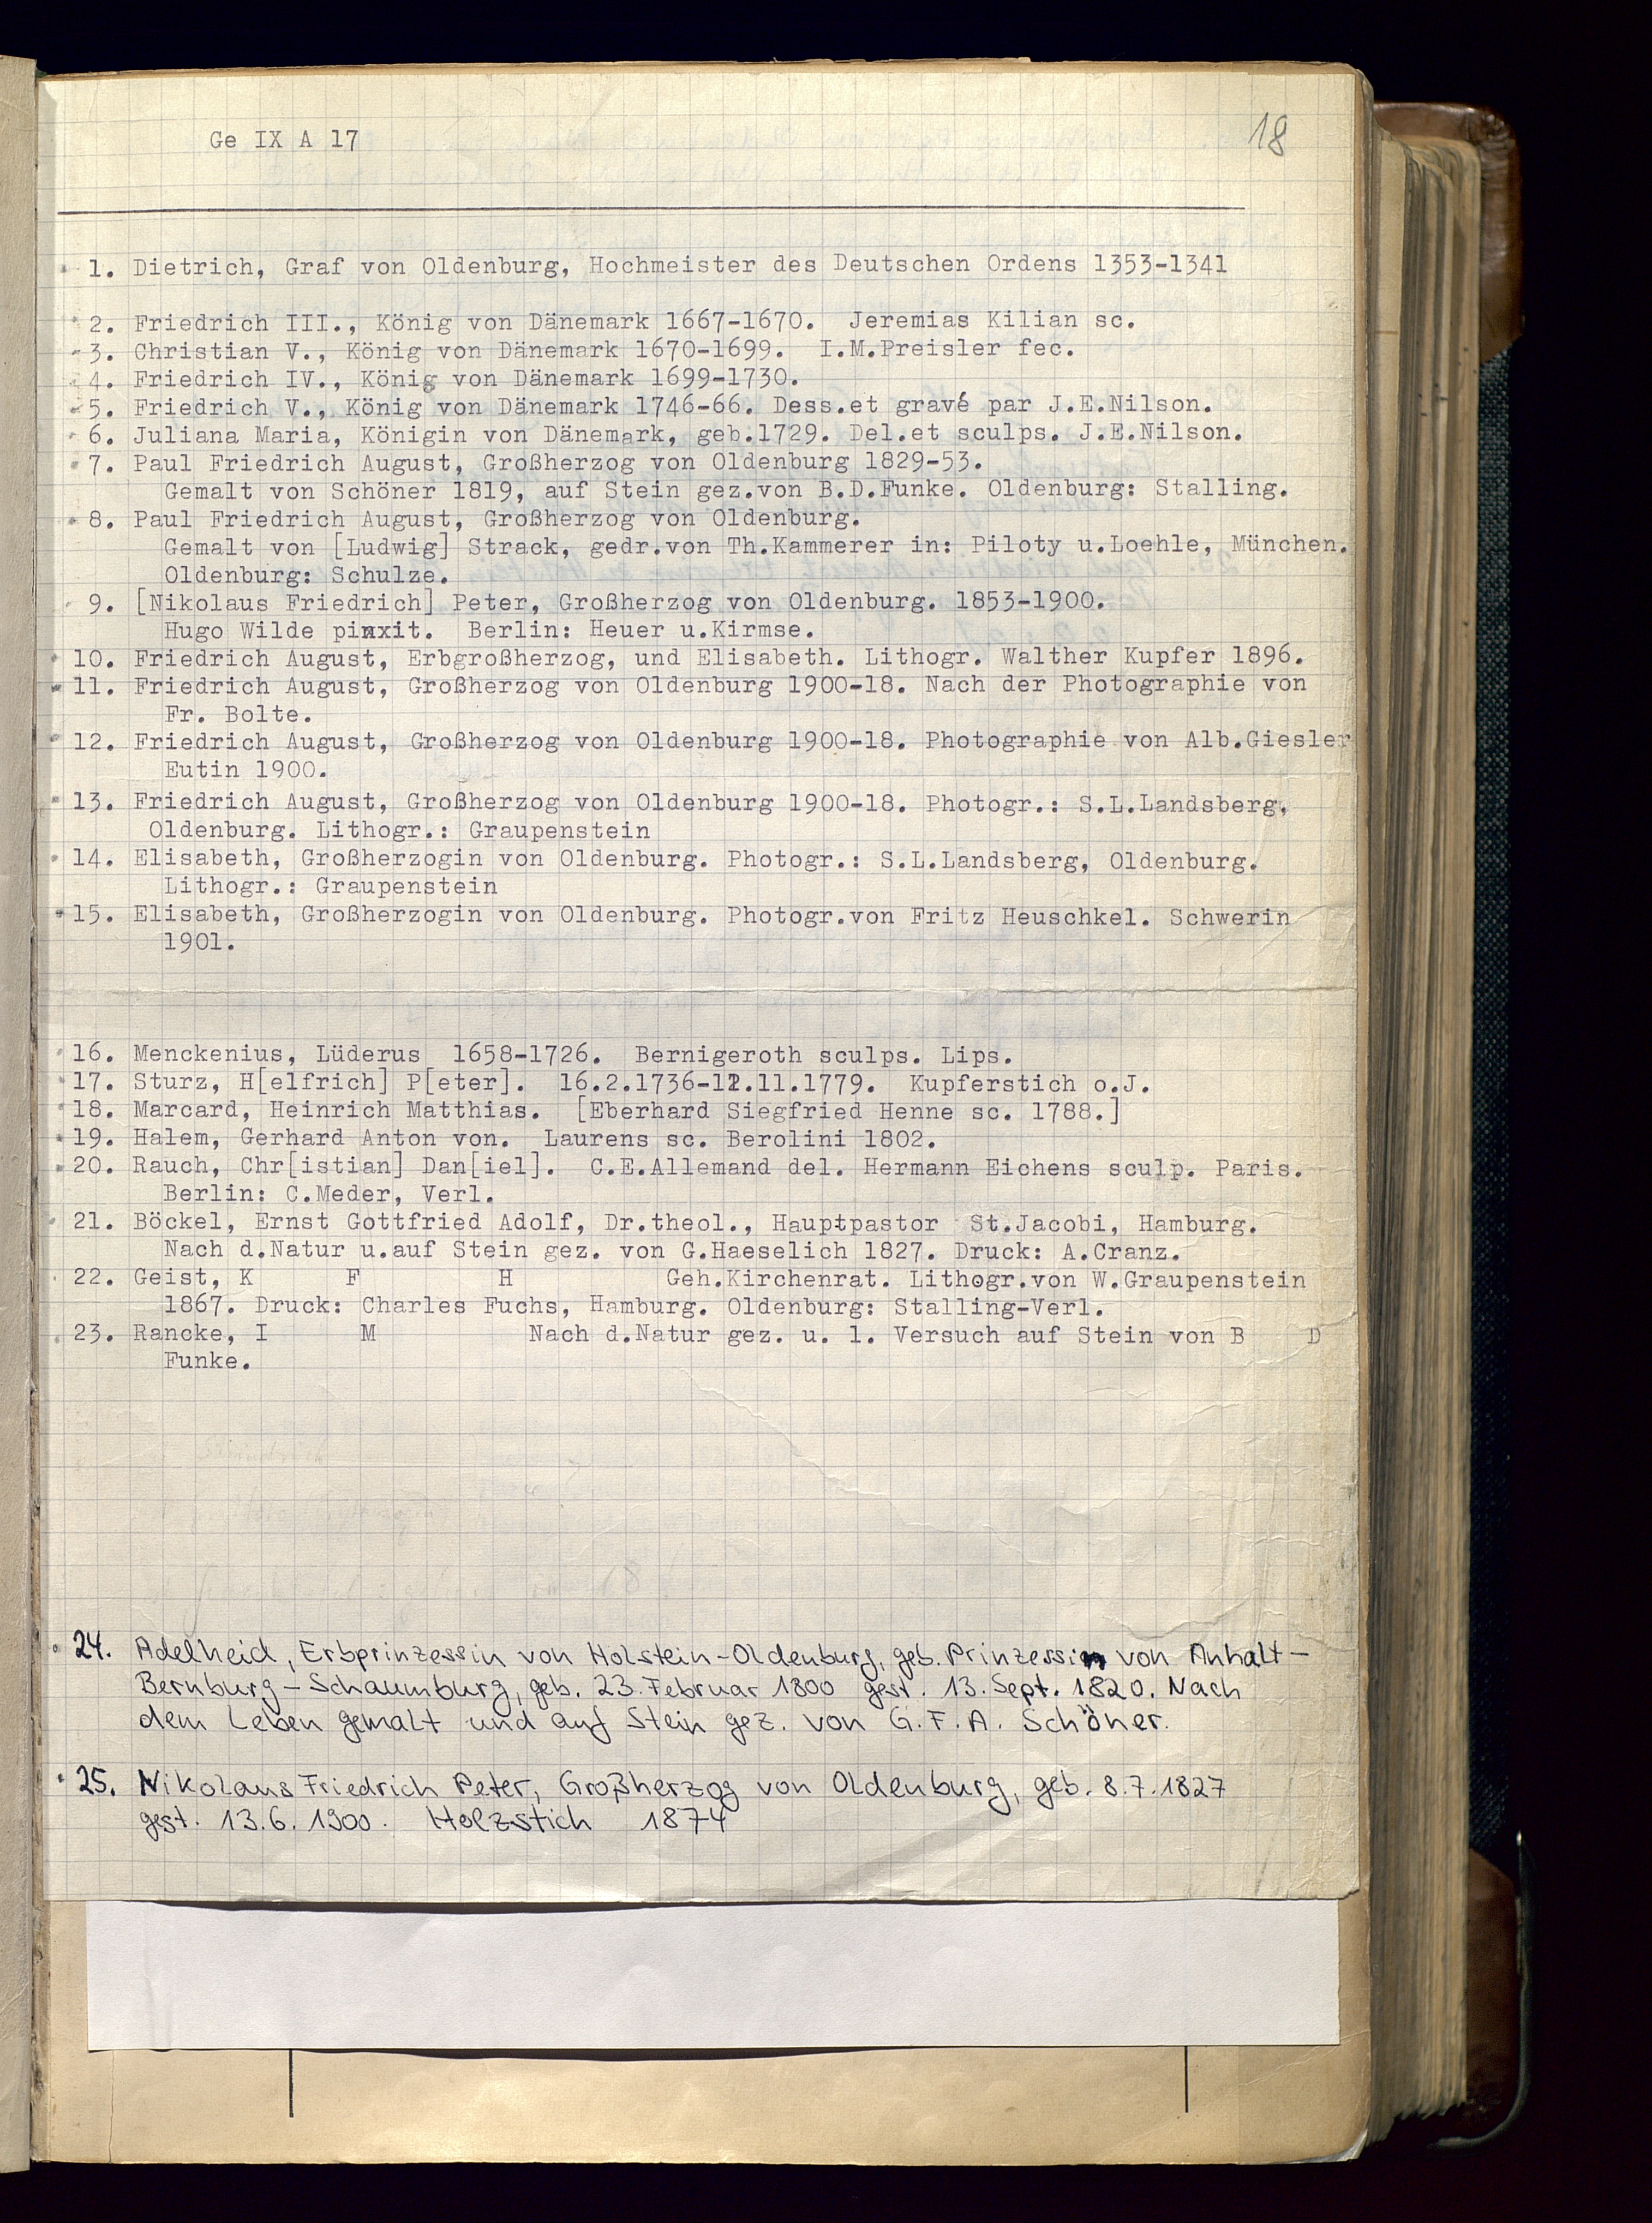 Ge IX A 17
18
1. Dietrich, Graf von Oldenburg, Hochmeister des Deutschen Ordens 1353-1341
2. Friedrich III., König von Dänemark 1667-1670. Jeremias Kilian sc.
3. Christian V., König von Dänemark 1670-1699. I.M.Preisler fec.
4. Friedrich IV., König von Dänemark 1699-1730.
5. Friedrich V., König von Dänemark 1746-66. Dess.et gravé par J.E.Nilson.
6. Juliana Maria, Königin von Dänemark, geb.1729. Del.et sculps. J.E.Nilson.
7. Paul Friedrich August, Großherzog von Oldenburg 1829-53.
Gemalt von Schöner 1819, auf Stein gez.von B.D.Funke. Oldenburg: Stalling.
8. Paul Friedrich August, Großherzog von Oldenburg.
Gemalt von [Ludwig] Strack, gedr.von Th.Kammerer in: Piloty u.Loehle, München.
Oldenburg: Schulze.
9. [Nikolaus Friedrich] Peter, Großherzog von Oldenburg. 1853-1900.
Hugo Wilde pinxit. Berlin: Heuer u.Kirmse.
10. Friedrich August, Erbgroßherzog, und Elisabeth. Lithogr. Walther Kupfer 1896.
11. Friedrich August, Großherzog von Oldenburg 1900-18. Nach der Photographie von
Fr. Bolte.
12. Friedrich August, Großherzog von Oldenburg 1900-18. Photographie von Alb.Giesler
Eutin 1900.
13. Friedrich August, Großherzog von Oldenburg 1900-18. Photogr.: S.L.Landsberg,
Oldenburg. Lithogr.: Graupenstein
14. Elisabeth, Großherzogin von Oldenburg. Photogr.: S.L.Landsberg, Oldenburg.
Lithogr.: Graupenstein
15. Elisabeth, Großherzogin von Oldenburg. Photogr.von Fritz Heuschkel. Schwerin
1901.
16. Menckenius, Lüderus 1658-1726. Bernigeroth sculps. Lips.
17. Sturz, H[elfrich] P[eter]. 16.2.1736-12.11.1779. Kupferstich o.J.
18. Marcard, Heinrich Matthias. [Eberhard Siegfried Henne sc. 1788.]
19. Halem, Gerhard Anton von. Laurens sc. Berolini 1802.
20. Rauch, Chr[istian] Dan[iel]. C.E.Allemand del. Hermann Eichens sculp. Paris.
Berlin: C.Meder, Verl.
21. Böckel, Ernst Gottfried Adolf, Dr.theol., Hauptpastor St.Jacobi, Hamburg.
Nach d.Natur u.auf Stein gez. von G.Haeselich 1827. Druck: A.Cranz.
22. Geist, K F H Geh.Kirchenrat. Lithogr.von W.Graupenstein
1867. Druck: Charles Fuchs, Hamburg. Oldenburg: Stalling-Verl.
23. Rancke, I M Nach d.Natur gez. u. l. Versuch auf Stein von B D
Funke.
24. Adelheid, Erbprinzessin von Holstein-Oldenburg, geb. Prinzessin von Anhalt-
Bernburg-Schaumburg, geb. 23. Februar 1800 gest. 13. Sept. 1820. Nach
dem Leben gemalt und auf Stein gez. von G.F.A. Schöner.
25. Nikolaus Friedrich Peter, Großherzog von Oldenburg, geb. 8.7.1827
gest. 13.6.1900. Holzstich 1874